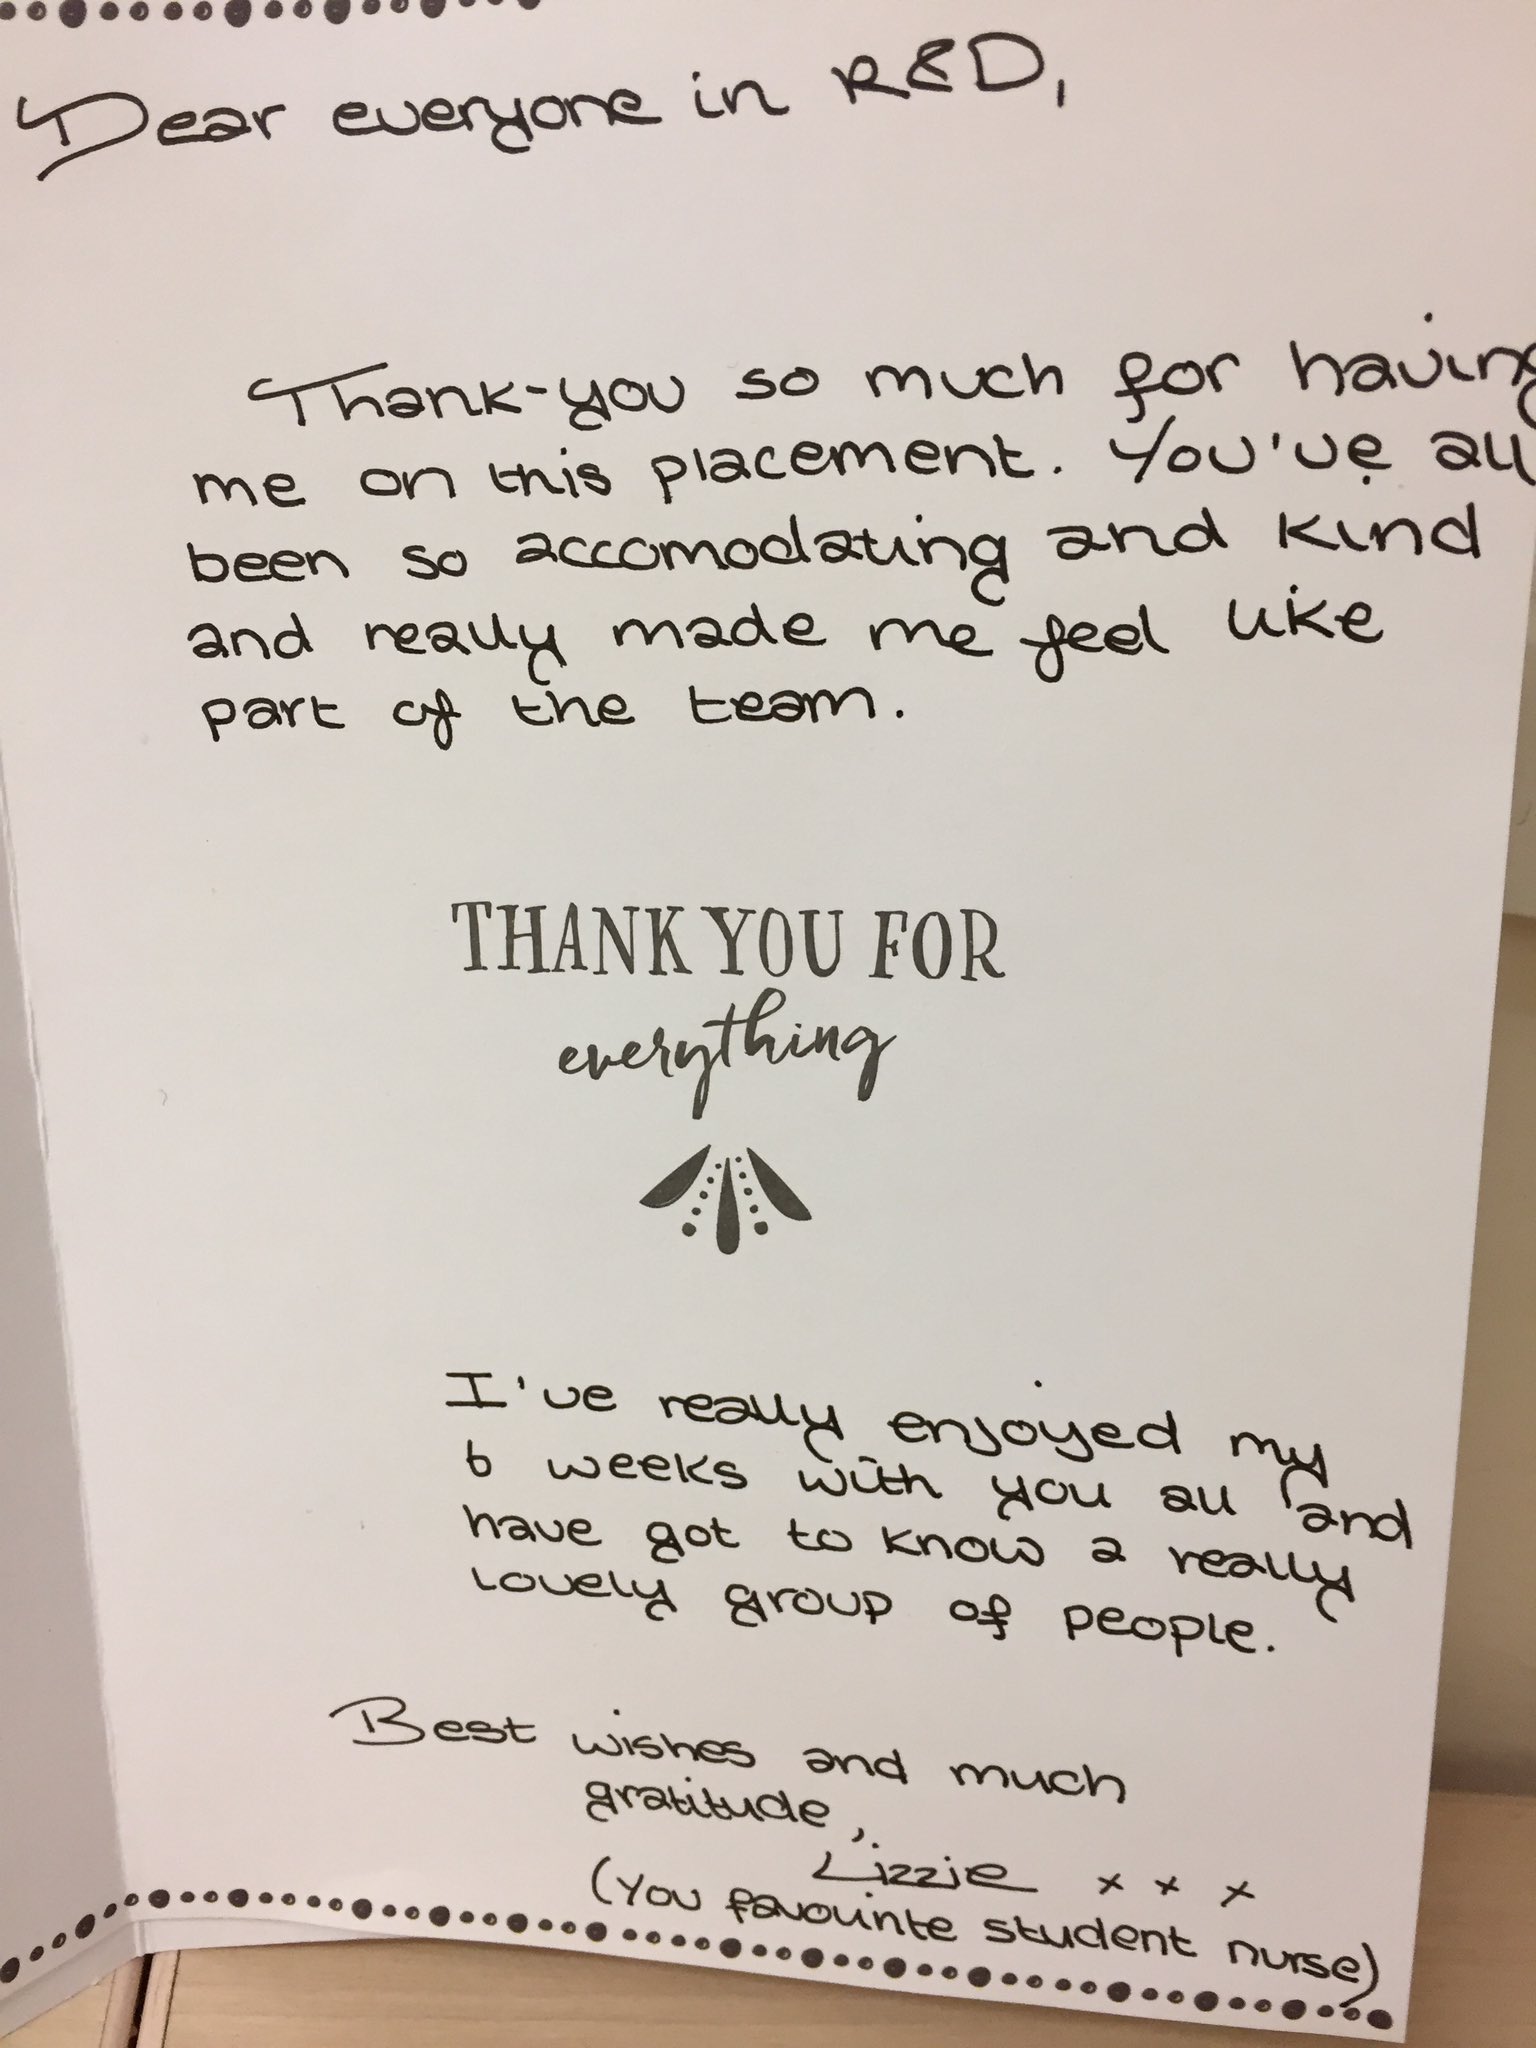 Dear everyone in R&D,
Thank-you so much for having
me on this placement. You've all
been so accomodating and kind
and really made me feel like
part of the team.
THANK YOU FOR
everything
I've really enjoyed my
6 weeks with you all and
have got to know a really
lovely group of people.
Best wishes and much
gratitude,
Lizzie x x x
(You favouinte student nurse)